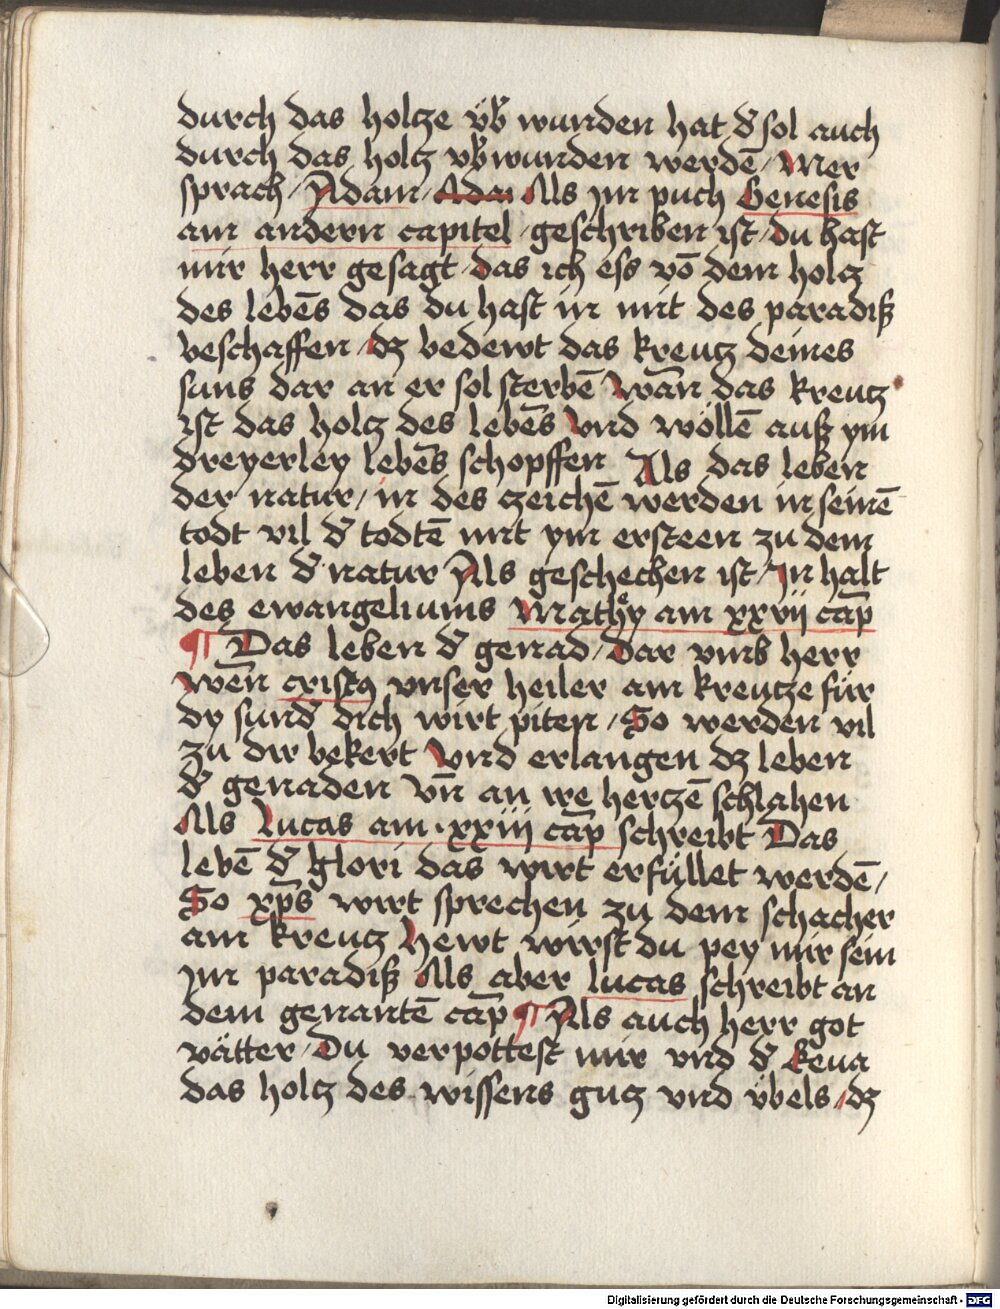 durch das holtze vb̈ wunden hat đ sol auch
durch das holtz vb̈wunden werdē / Mer
sprach / Adam / Adam Als jm puch Genesis
am andern capitel / geschriben ist / du hast
mir herr gesagt / das ich ess vō dem holtz
des lebēs das du hast in mit des paradiß
beschaffen / dz bedewt das kreutz deines
suns dar an er sol sterbē Wān das kreutz
ist das holtz des lebēs Vnd wöllē auß ym
dreyerley lebēs schopffen Als das leben
der natur / in des zeichē werden in seinē
todt vil đ todtē mit ym ersteen zu dem
leben đ natur Als geschechen ist / Jn halt
des ewangeliums Mathey am xxvij cap̄
¶ Das leben đ genad / Dar vmb herr
Wēn cristꝯ vnser heiler am kreutze für
dy sund̄ dich wirt piten / So werden vil
zu dir bekert Vnd erlangen dz leben
đ genaden Vn̄ an we hertzē schlahen
Als Lucas am · xxiij cap̄ schreibt Das
lebē đ glori das wirt erfüllet werdē /
So xp̄s wirt sprechen zu dem schacher
am kreutz Hewt wirst du pey mir sein
jm paradiß Als aber lucas schreibt an
dem genantē cap̄ ¶ Als auch herr got
vätter / Du verpottest mir vnd đ Eeua
das holtz des wissens gutz vnd übels / dz
Digitalisierung gefördert durch die Deutsche Forschungsgemeinschaft - DFG